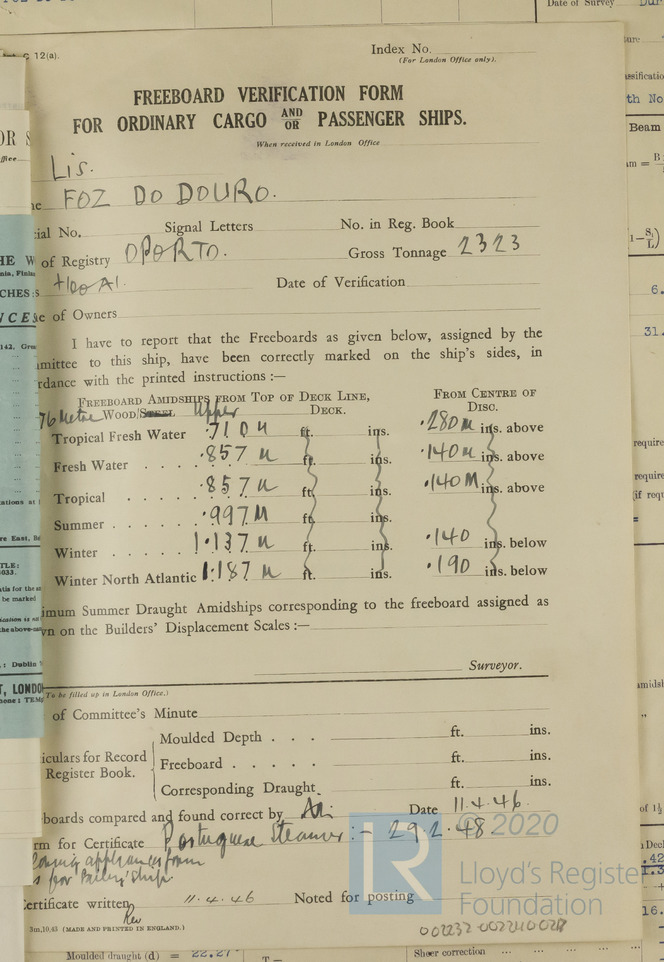 Date of Survey
C 12(a).
Index No.
(For London Office only).
FREEBOARD VERIFICATION FORM
FOR ORDINARY CARGO AND/OR PASSENGER SHIPS.
When received in London Office
Lis.
FOZ DO DOURO.
ial No. Signal Letters No. in Reg. Book
of Registry OPORTO. Gross Tonnage 2323
+100A1. Date of Verification
e of Owners
I have to report that the Freeboards as given below, assigned by the
mmittee to this ship, have been correctly marked on the ship's sides, in
rdance with the printed instructions :—
FREEBOARD AMIDSHIPS FROM TOP OF DECK LINE, FROM CENTRE OF
76 Metre WOOD/STEEL Upper DECK. DISC.
Tropical Fresh Water .710 M ft. ins. .280 M ins. above
Fresh Water . . . . .857 M ft. ins. .140 M ins. above
Tropical . . . . . .857 M ft. ins. .140 M ins. above
Summer . . . . . .997 M ft. ins.
Winter . . . . . 1.137 M ft. ins. .140 ins. below
Winter North Atlantic 1.187 M ft. ins. .190 ins. below
imum Summer Draught Amidships corresponding to the freeboard assigned as
wn on the Builders' Displacement Scales :—
Surveyor.
(To be filled up in London Office.)
of Committee's Minute
iculars for Record
Register Book.
Moulded Depth . . . ft. ins.
Freeboard . . . . . ft. ins.
Corresponding Draught ft. ins.
boards compared and found correct by Date 11.4.46
rm for Certificate Portuguese Steamer :- 29.2.48.
ertificate written 11.4.46 Noted for posting
3m,10,43 (MADE AND PRINTED IN ENGLAND.)
002232-002240-0217
© 2020
LR
Lloyd's Register
Foundation
Moulded draught (d) = 22.27
Sheer correction